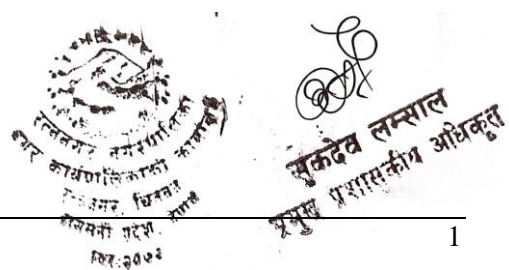 रत्ननगर नगरपालिका
नगर कार्यपालिकाको कार्यालय
रत्ननगर, चितवन
बागमती प्रदेश, नेपाल
सुकदेव लम्साल
प्रमुख प्रशासकीय अधिकृत
1